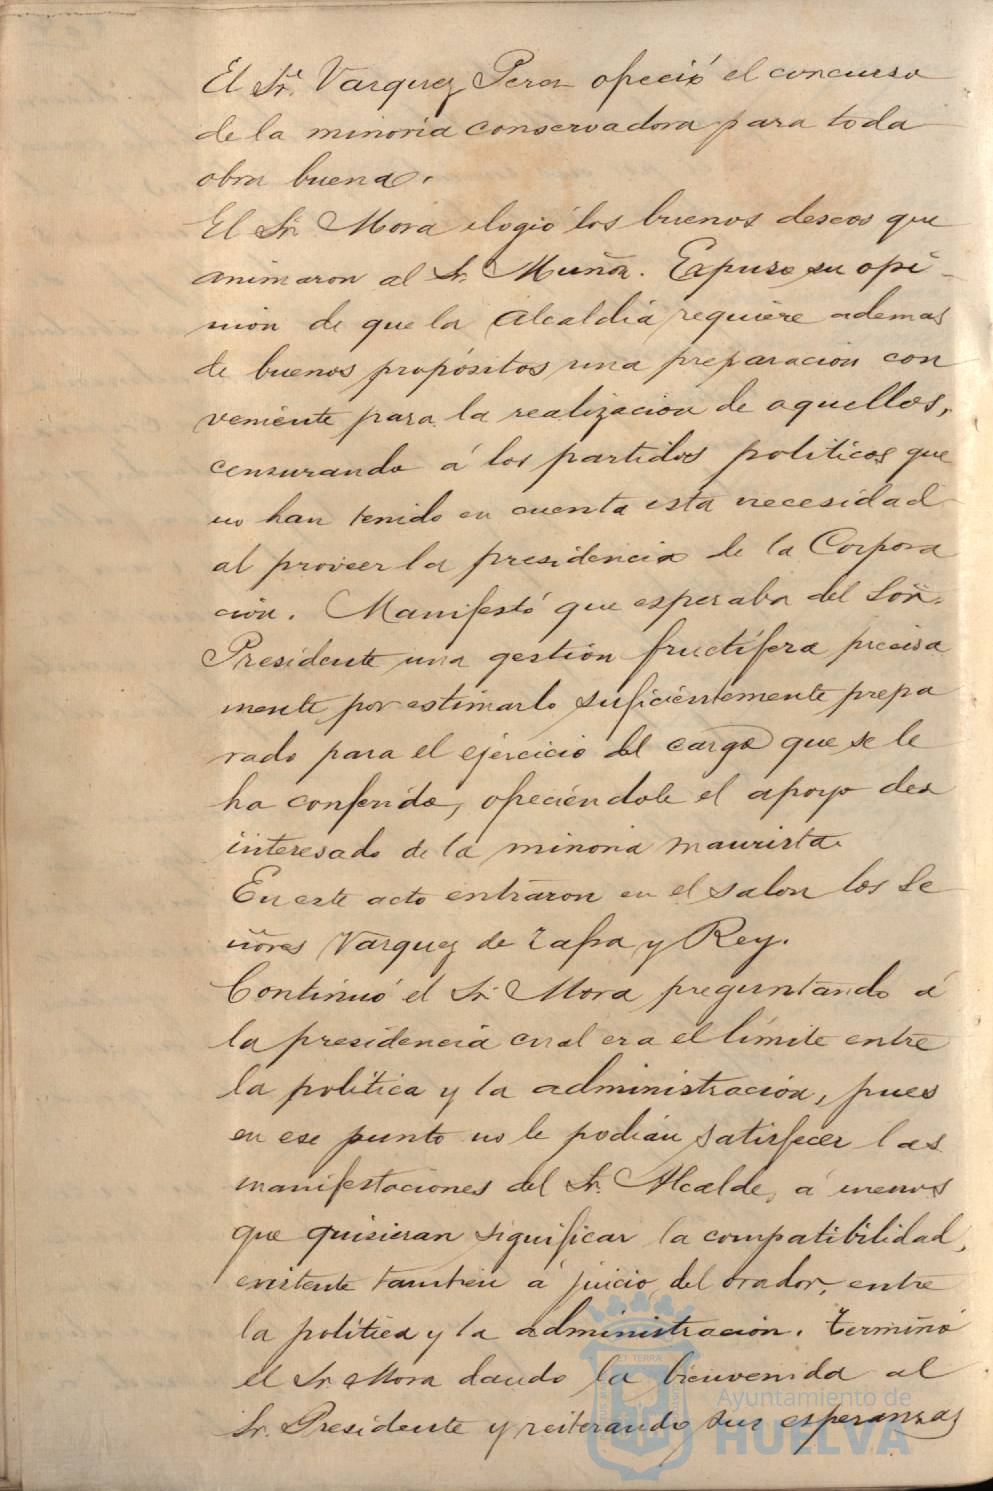 El Sr. Vazquez Perez ofreció el concurso
de la minoria conservadora para toda
obra buena.
El Sr. Mora elogió los buenos deseos que
animaron al Sr. Muñoz. Expuso su opi-
nión de que la Alcaldia requiere ademas
de buenos propósitos una preparación con
veniente para la realización de aquellos,
censurando á los partidos politicos que
no han tenido en cuenta esta necesidad
al proveer la presidencia de la Corpora
ción. Manifestó que esperaba del Señ.
Presidente una gestión fructífera precisa
mente por estimarlo suficientemente prepa
rado para el ejercicio del cargo que se le
ha conferido, ofreciéndole el apoyo des
interesado de la minoria maurista.
En este acto entraron en el salon los Se
ñores Vazquez de Zafra y Rey.
Continuó el Sr. Mora preguntando á
la presidencia cual era el límite entre
la política y la administración, pues
en ese punto no le podian satisfacer las
manifestaciones del Sr. Alcalde, á menos
que quisieran significar la compatibilidad,
existente tambien á juicio del orador, entre
la política y la administración. Terminó
el Sr. Mora dando la bienvenida al
Sr. Presidente y reiterando sus esperanzas
Ayuntamiento de
HUELVA